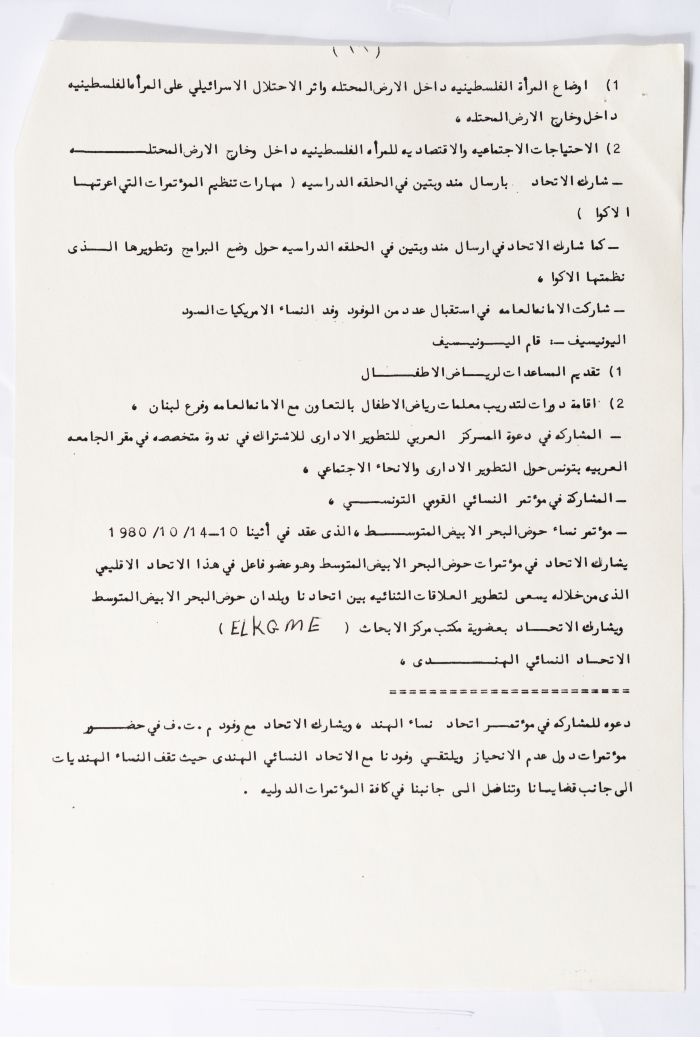 ( ١١ )
1) اوضاع المرأة الفلسطينيه داخل الارض المحتله واثر الاحتلال الاسرائيلي على المرأه الفلسطينيه
داخل وخارج الارض المحتله ،
2) الاحتياجات الاجتماعيه والاقتصاديه للمرأه الفلسطينيه داخل وخارج الارض المحتلـــــــه
ــ شارك الاتحاد بارسال مندوبتين في الحلقه الدراسيه ( مهارات تنظيم المؤتمرات التي اعرتهـا
الاكوا )
ــ كما شارك الاتحاد في ارسال مندوبتين في الحلقه الدراسيه حول وضع البرامج وتطويرها الـــذى
نظمتها الاكوا ،
ــ شاركت الامانه العامه في استقبال عدد من الوفود وفد النساء الامريكيات السود
اليونيسيف ــ: قام اليــونيــسيف
1) تقديم المساعدات لريــــاض الاطفـــــال
2) اقامة دورات لتدريب معلمات رياض الاطفال بالتعاون مع الامانه العامه وفرع لبنان ،
ــ المشاركه في دعوة المسركز العربي للتطوير الادارى للاشتراك في ندوة متخصصه في مقر الجامعه
العربيه بتونس حول التطوير الادارى والانحاء الاجتماعي ،
ــ المشاركة في مؤتمر النسائي القومي التونســـي ،
ــ مؤتمر نساء حوض البحر الابيض المتوســـط ، الذى عقد في أثينا 10ــ14/ 10/ 1980
يشارك الاتحاد في مؤتمرات حوض البحر الابيض المتوسط وهو عضو فاعل في هذا الاتحاد الاقليمي
الذى من خلاله يسعى لتطوير العلاقات الثنائيه بين اتحادنا وبلدان حوض البحر الابيض المتوسط
ويشارك الاتحـــاد بعضوية مكتب مركز الابحاث ( ELKGME )
الاتحـاد النسائي الهنـــــــدى ،
=========================
دعوه للمشاركه في مؤتمـــر اتحاد نساء الهند ، ويشارك الاتحاد مع وفود م.ت.ف في حضـــور
مؤتمرات دول عدم الانحياز ويلتقـي وفودنا مع الاتحاد النسائي الهندى حيث تقف النساء الهنديات
الى جانب قضايـانا وتناضل الـى جانبنا في كافة المؤتمرات الدوليه .